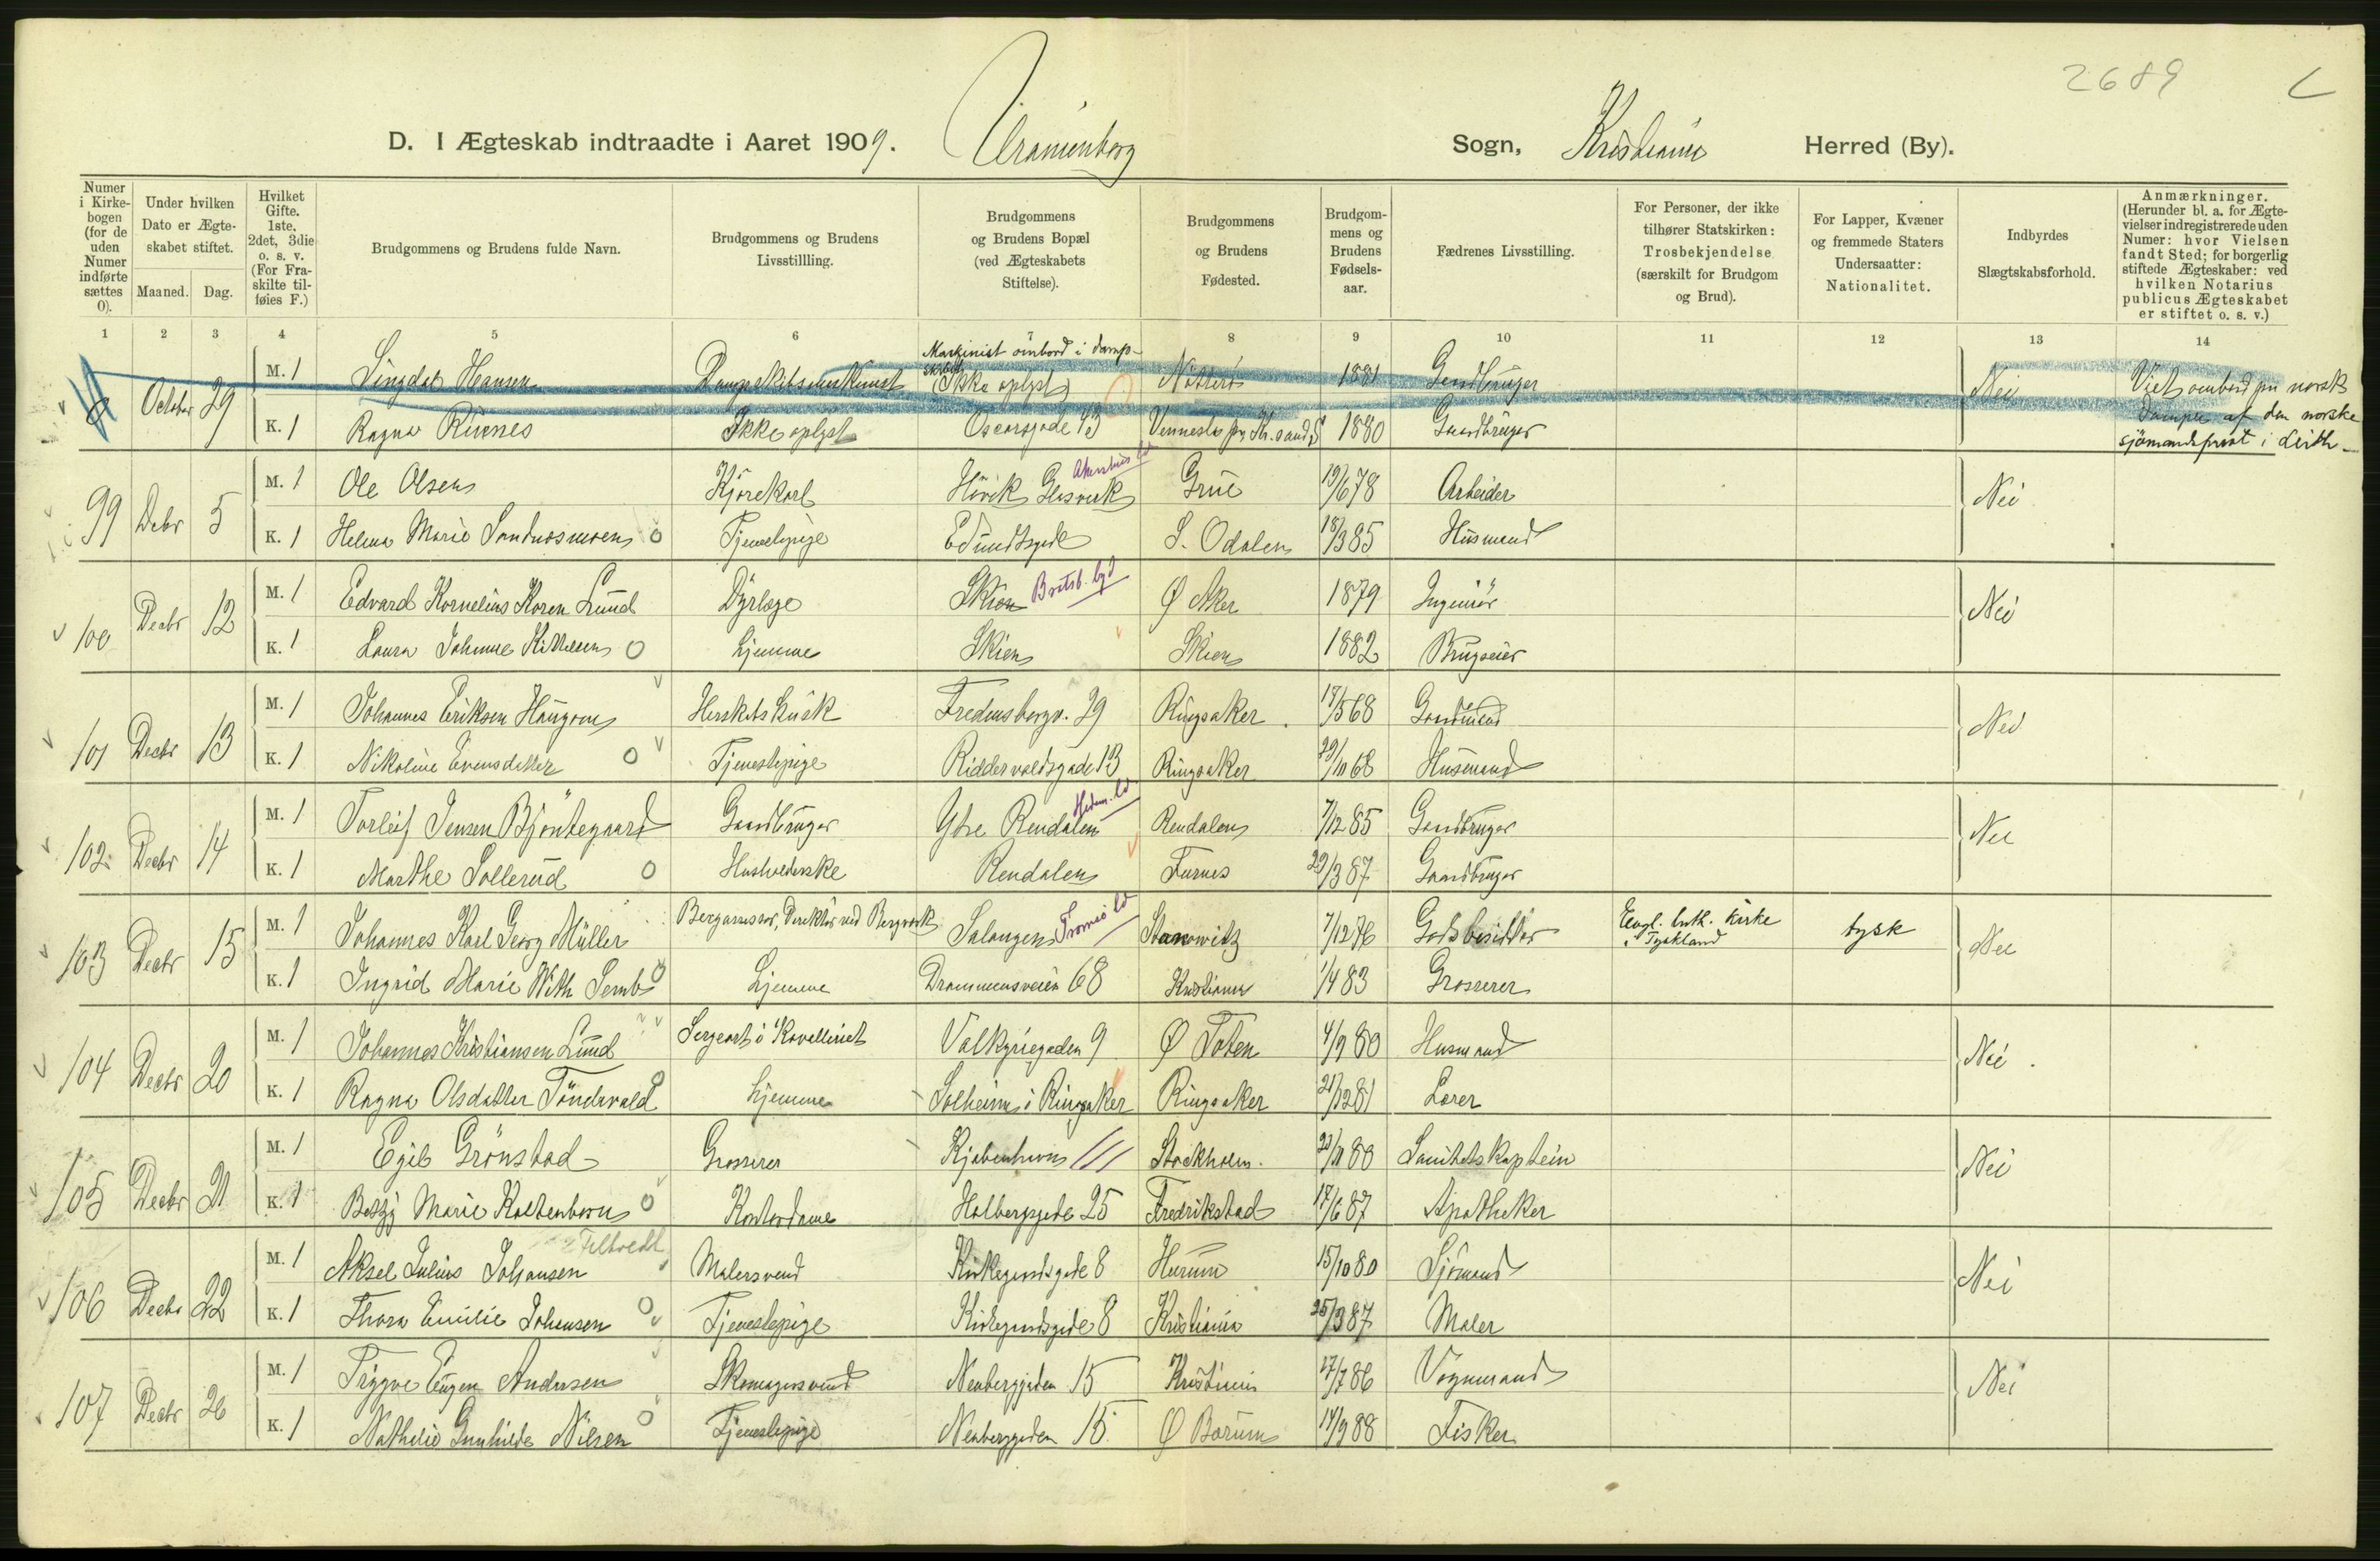 2689
D. I Ægteskab indtraadte i Aaret 1909. Uranienborg Sogn, Kristiania Herred (By).
Numer i Kirkebogen (for de uden Numer indførte sættes 0).
Under hvilken Dato er Ægteskabet stiftet.
Maaned. Dag.
Hvilket Gifte. 1ste, 2det, 3die o. s. v. (For Fraskilte tilføies F.)
Brudgommens og Brudens fulde Navn.
Brudgommens og Brudens Livsstillling.
Brudgommens og Brudens Bopæl (ved Ægteskabets Stiftelse).
Brudgommens og Brudens Fødested.
Brudgommens og Brudens Fødselsaar.
Fædrenes Livsstilling.
For Personer, der ikke tilhører Statskirken: Trosbekjendelse (særskilt for Brudgom og Brud).
For Lapper, Kvæner og fremmede Staters Undersaatter: Nationalitet.
Indbyrdes Slægtskabsforhold.
Anmærkninger. (Herunder bl. a. for Ægtevielser indregistrerede uden Numer: hvor Vielsen fandt Sted; for borgerlig stiftede Ægteskaber: ved hvilken Notarius publicus Ægteskabet er stiftet o. s. v.)
1 2 3 4 5 6 7 8 9 10 11 12 13 14
Maskinist ombord i damp-
October 29 M. 1 Hansen (Ikke oplyst) Nøtterø 1881 Gaardbruger Nei Viet ombord paa norsk
K. 1 Ragna Ikke oplyst Oscarsgade 43 Vennesla pr. Kr.sand S 1880 Gaardbruger Damper af den norske
sjömandsprest i Leith
99 Decbr 5 M. 1 Ole Olsen Kjørekarl Høvik Glasverk Akershus ld Grue 19/6 78 Arbeider Nei
K. 1 Helena Marie Tjenestepige Eilundtsgade S. Odalen 18/3 85 Husmand
100 Decbr 12 M. 1 Edvard Kornelius Koren Lund Dyrlæge Skien Bratsb. byd Ø Aker 1879 Ingeniør Nei
K. 1 Laura Johanne Kittilsen O Hjemme Skien Skien 1882 Brugseier
101 Decbr 13 M. 1 Johannes Eriksen Haugom Herskabskusk Fredensborgv. 29 Ringsaker 17/5 68 Gaardmand Nei
K. 1 Nikoline Evensdatter O Tjenestepige Riddervoldsgade 13 Ringsaker 29/10 68 Husmand
102 Decbr 14 M. 1 Torleif Jensen Bjøntegaard Gaardbruger Ytre Rendalen Hedem. ld Rendalen 7/12 85 Gaardbruger Nei
K. 1 Marthe Sollerud O Husholderske Rendalen Furnes 29/3 87 Gaardbruger
103 Decbr 15 M. 1 Johannes Karl Georg Müller Bergassessor, Direktør ved Bergverk Salangen Tromsø ld Stanowitz 7/12 76 Godsbesidder Evgl. luth. kirke i Tyskland tysk Nei
K. 1 Ingrid Marie With Semb O Hjemme Drammensveien 68 Kristiania 1/4 83 Grosserer
104 Decbr 20 M. 1 Johannes Kristiansen Lund Sergeant i Kavelleriet Valkyriegaden 9 Ø Toten 4/9 80 Husmand Nei
K. 1 Ragna Olsdatter Tøndevold O Hjemme Solheim i Ringsaker Ringsaker 21/12 81 Lærer
105 Decbr 21 M. 1 Egil Grønstad Grosserer Kjøbenhavn Stockholm Sanitetskaptein Nei
K. 1 Betzy Marie Kaltenborn O Kontordame Holbergsgade 25 Fredrikstad 17/6 87 Apotheker
Tiltvedt
106 Decbr 22 M. 1 Aksel Julius Johansen Malersvend Kirkegaardsgade 8 Hurum 15/10 80 Sjømand Nei
K. 1 Thora Emilie Johansen O Tjenestepige Kirkegaardsgade 8 Kristiania 25/3 87 Maler
107 Decbr 26 M. 1 Trygve Eugen Andersen Skomagersvend Neuberggaden 15 Kristiania 27/7 86 Vognmand Nei
K. 1 Nathalie Gunhilde Nilsen O Tjenestepige Neuberggaden 15 Ø Bærum 14/9 88 Fisker